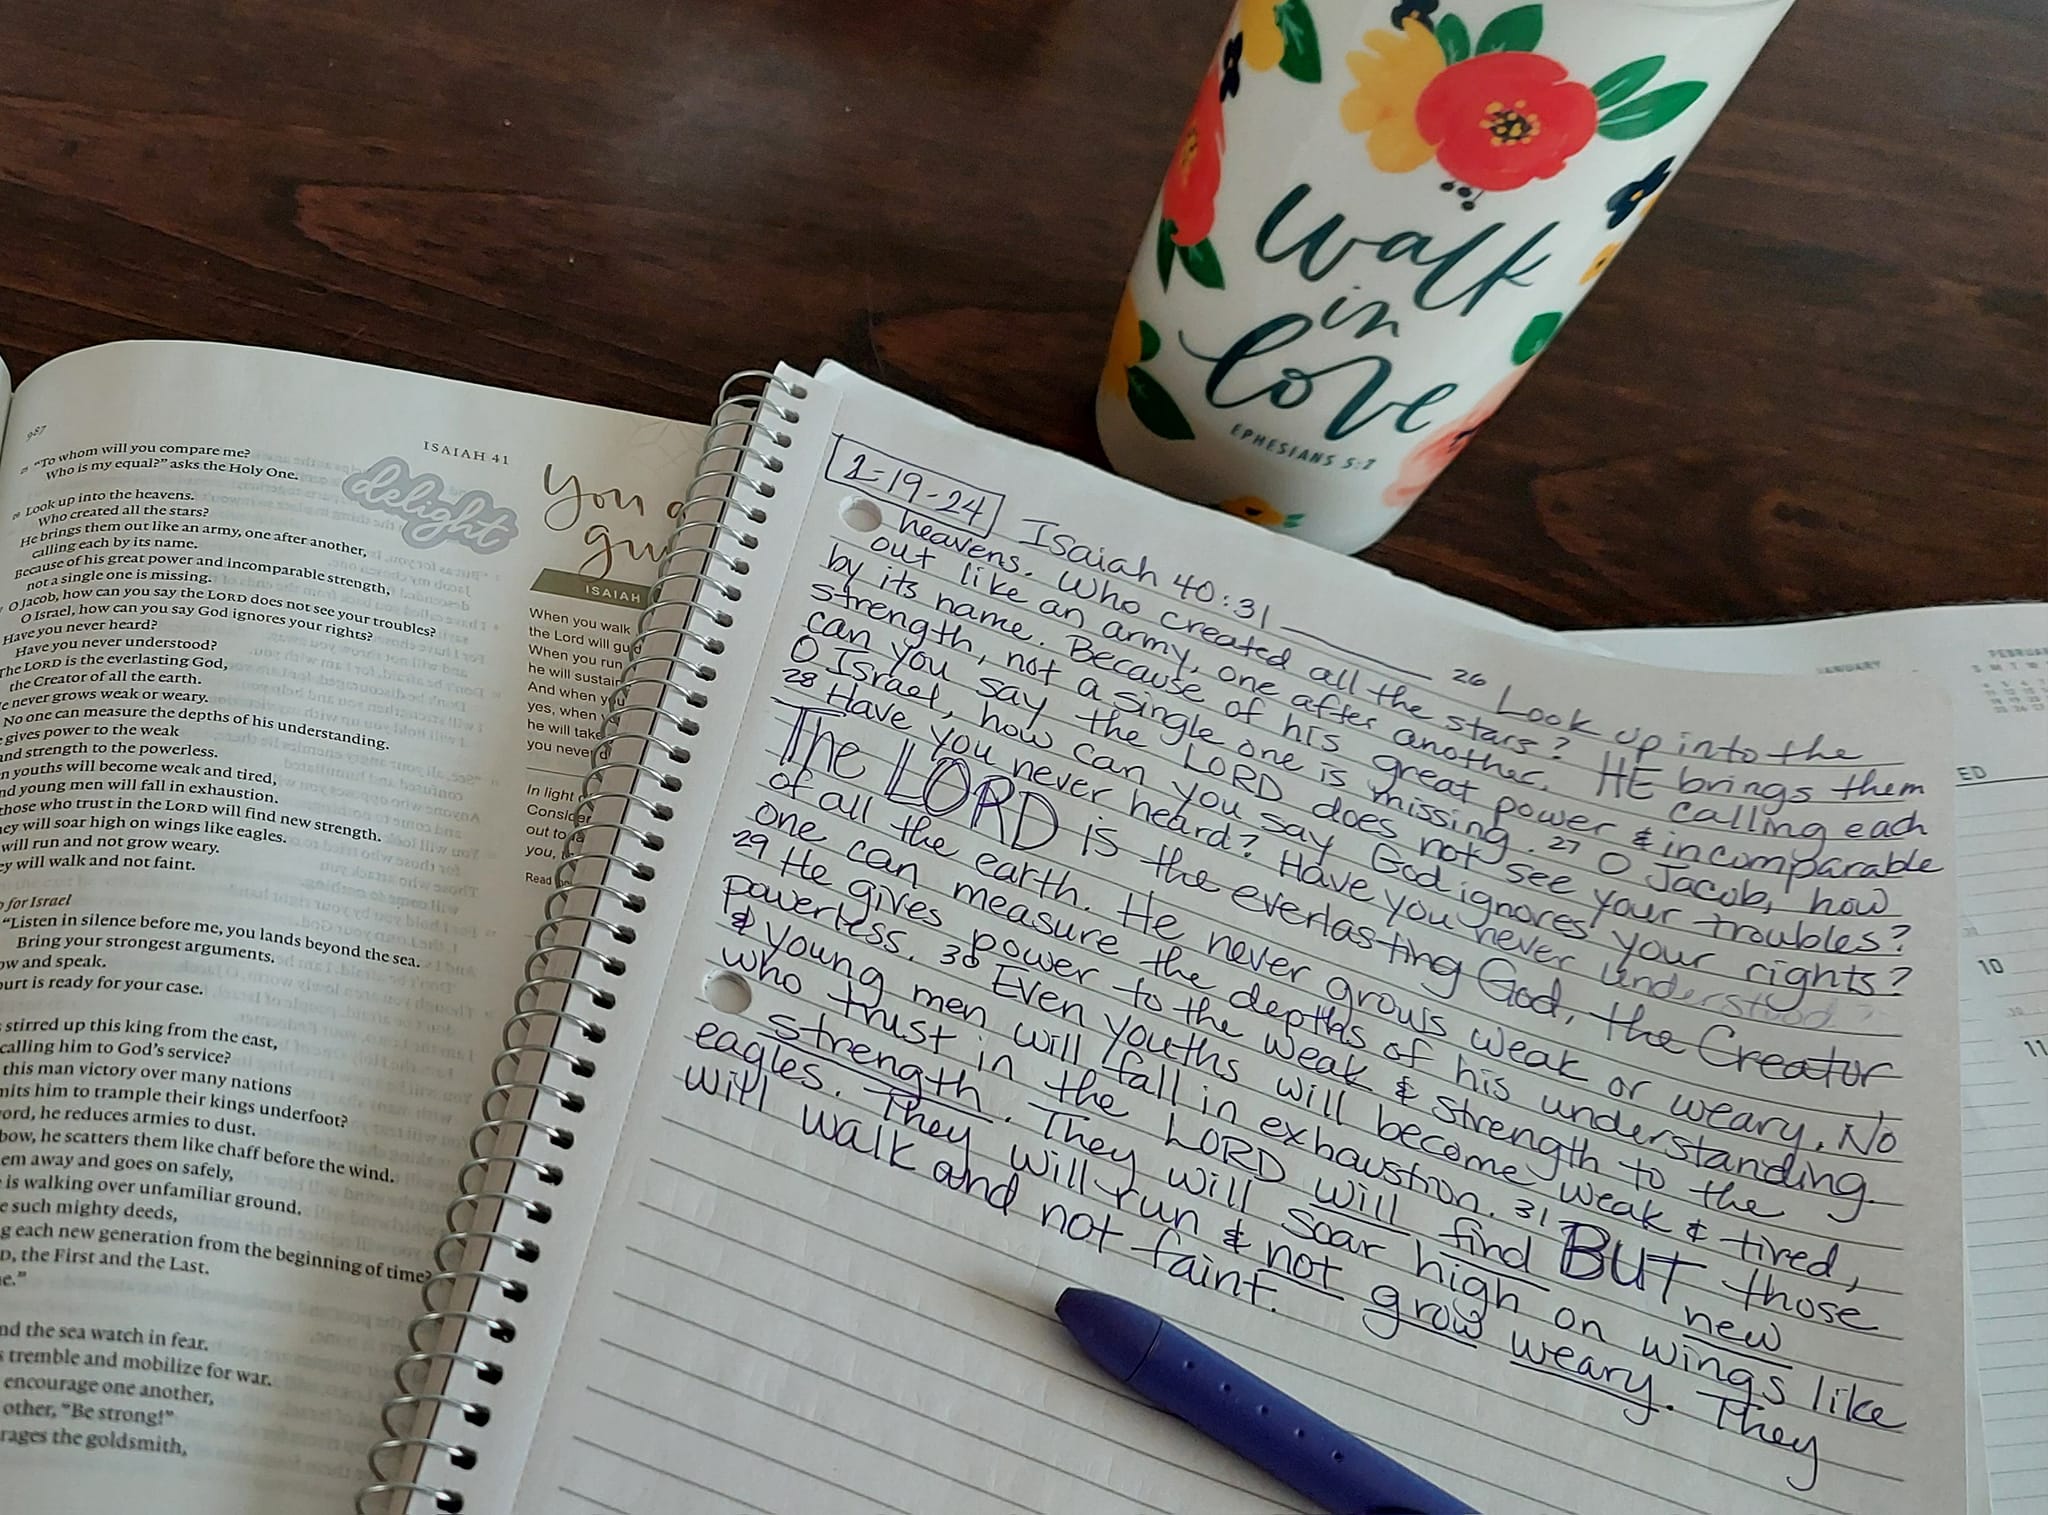 walk
in
love
EPHESIANS 5:2
987
ISAIAH 41
25 "To whom will you compare me?
Who is my equal?" asks the Holy One.
26 Look up into the heavens.
Who created all the stars?
He brings them out like an army, one after another,
calling each by its name.
Because of his great power and incomparable strength,
not a single one is missing.
O Jacob, how can you say the LORD does not see your troubles?
O Israel, how can you say God ignores your rights?
Have you never heard?
Have you never understood?
The LORD is the everlasting God,
the Creator of all the earth.
never grows weak or weary.
No one can measure the depths of his understanding.
gives power to the weak
and strength to the powerless.
youths will become weak and tired,
young men will fall in exhaustion.
those who trust in the LORD will find new strength.
will soar high on wings like eagles.
will run and not grow weary.
will walk and not faint.
for Israel
"Listen in silence before me, you lands beyond the sea.
Bring your strongest arguments.
and speak.
is ready for your case.
stirred up this king from the east,
calling him to God's service?
this man victory over many nations
him to trample their kings underfoot?
he reduces armies to dust.
he scatters them like chaff before the wind.
away and goes on safely,
is walking over unfamiliar ground.
such mighty deeds,
each new generation from the beginning of time?
the First and the Last.
the sea watch in fear.
tremble and mobilize for war.
encourage one another,
other, "Be strong!"
the goldsmith,
delight
you
ISAIAH
When you walk
the Lord will
When you run
he will
And when you
yes, when
he will take
you never
In light
Consider
out to
you,
Read
2-19-24 Isaiah 40:31 26 Look up into the
heavens. Who created all the stars? HE brings them
out like an army, one after another, calling each
by its name. Because of his great power & incomparable
strength, not a single one is missing. 27 O Jacob, how
can you say the LORD does not see your troubles?
O Israel, how can you say God ignores your rights?
28 Have you never heard? Have you never understood?
The LORD is the everlasting God, the Creator
of all the earth. He never grows weak or weary. No
one can measure the depths of his understanding.
29 He gives power to the weak & strength to the
powerless. 30 Even youths will become weak & tired,
& young men will fall in exhaustion. 31 BUT those
who trust in the LORD will find new
strength. They will soar high on wings like
eagles. They will run & not grow weary. They
will walk and not faint.
JANUARY
10
11